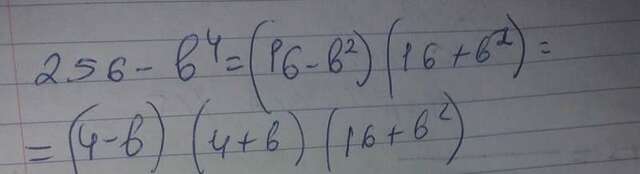 256 - b⁴ = (16 - b²) (16 + b²) =
= (4 - b) (4 + b) (16 + b²)